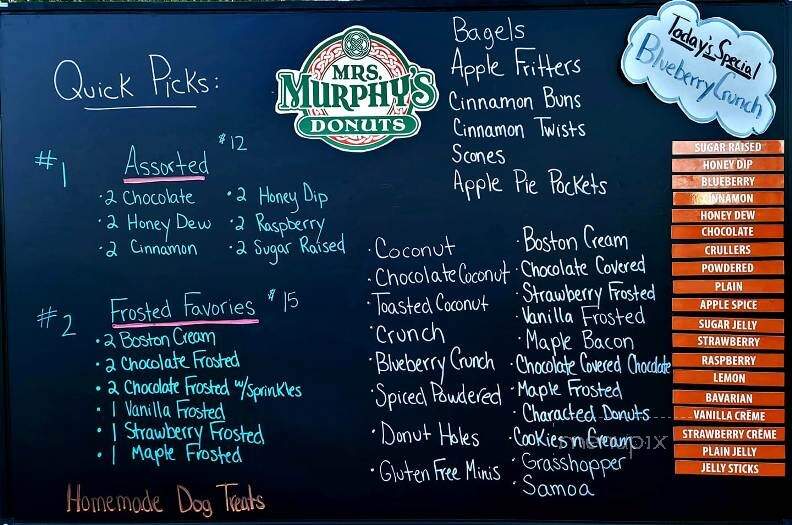 Quick Picks:
#1
Assorted
$12
• 2 Chocolate
• 2 Honey Dew
• 2 Cinnamon
• 2 Honey Dip
• 2 Raspberry
• 2 Sugar Raised
#2
Frosted Favories
$15
• 2 Boston Cream
• 2 Chocolate Frosted
• 2 Chocolate Frosted w/Sprinkles
• 1 Vanilla Frosted
• 1 Strawberry Frosted
• 1 Maple Frosted
Homemade Dog Treats
MRS.
MURPHY'S
DONUTS
Bagels
Apple Fritters
Cinnamon Buns
Cinnamon Twists
Scones
Apple Pie Pockets
• Coconut
• Chocolate Coconut
• Toasted Coconut
• Crunch
• Blueberry Crunch
• Spiced Powdered
• Donut Holes
• Gluten Free Minis
• Boston Cream
• Chocolate Covered
• Strawberry Frosted
• Vanilla Frosted
• Maple Bacon
• Chocolate Covered Chocolate
• Maple Frosted
• Characted Donuts
• Cookies n Cream
• Grasshopper
• Samoa
Today's Special
Blueberry Crunch
SUGAR RAISED
HONEY DIP
BLUEBERRY
CINNAMON
HONEY DEW
CHOCOLATE
CRULLERS
POWDERED
PLAIN
APPLE SPICE
SUGAR JELLY
STRAWBERRY
RASPBERRY
LEMON
BAVARIAN
VANILLA CRÈME
STRAWBERRY CRÈME
PLAIN JELLY
JELLY STICKS
menupix